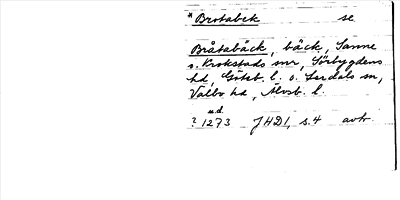 * Brotabek se
Bråtabäck, bäck, Sanne
o. Krokstads snr, Sörbygdens
hd, Göteb. l. o. Lerdals sn,
Valbo hd, Älvsb. l.
u.d.
? 1273 JHD1, s.4 avtr